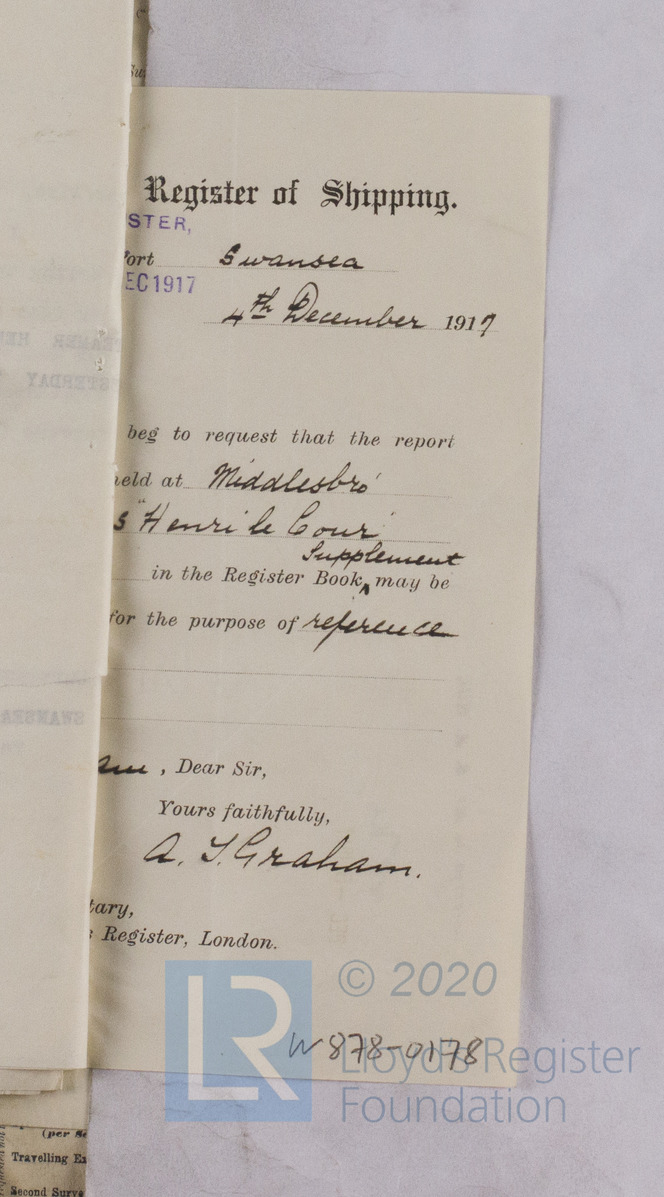 Register of Shipping.
STER,
Port Swansea
EC 1917
4th December 1917
beg to request that the report
held at Middlesbro'
s "Henri le Cour"
Supplement
in the Register Book, may be
for the purpose of reference
am, Dear Sir,
Yours faithfully,
A. T. Graham.
tary,
s Register, London.
LR
© 2020
W878-0178
Lloyd's Register
Foundation
SWANSEA
YESTERDAY
(per Se
Travelling Ex
Second Surve